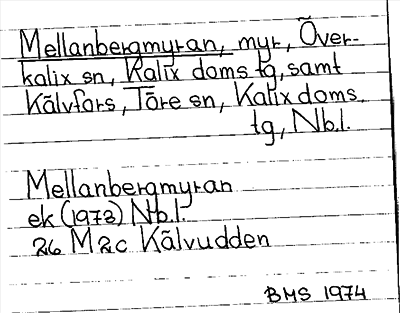 Mellanbergmyran, myr, Över-
kalix sn, Kalix doms tg, samt
Kälvfors, Töre sn, Kalix doms.
tg, Nb.l.
Mellanbergmyran
ek (1973) Nb.l.
26 M 2c Kälvudden
BMS 1974